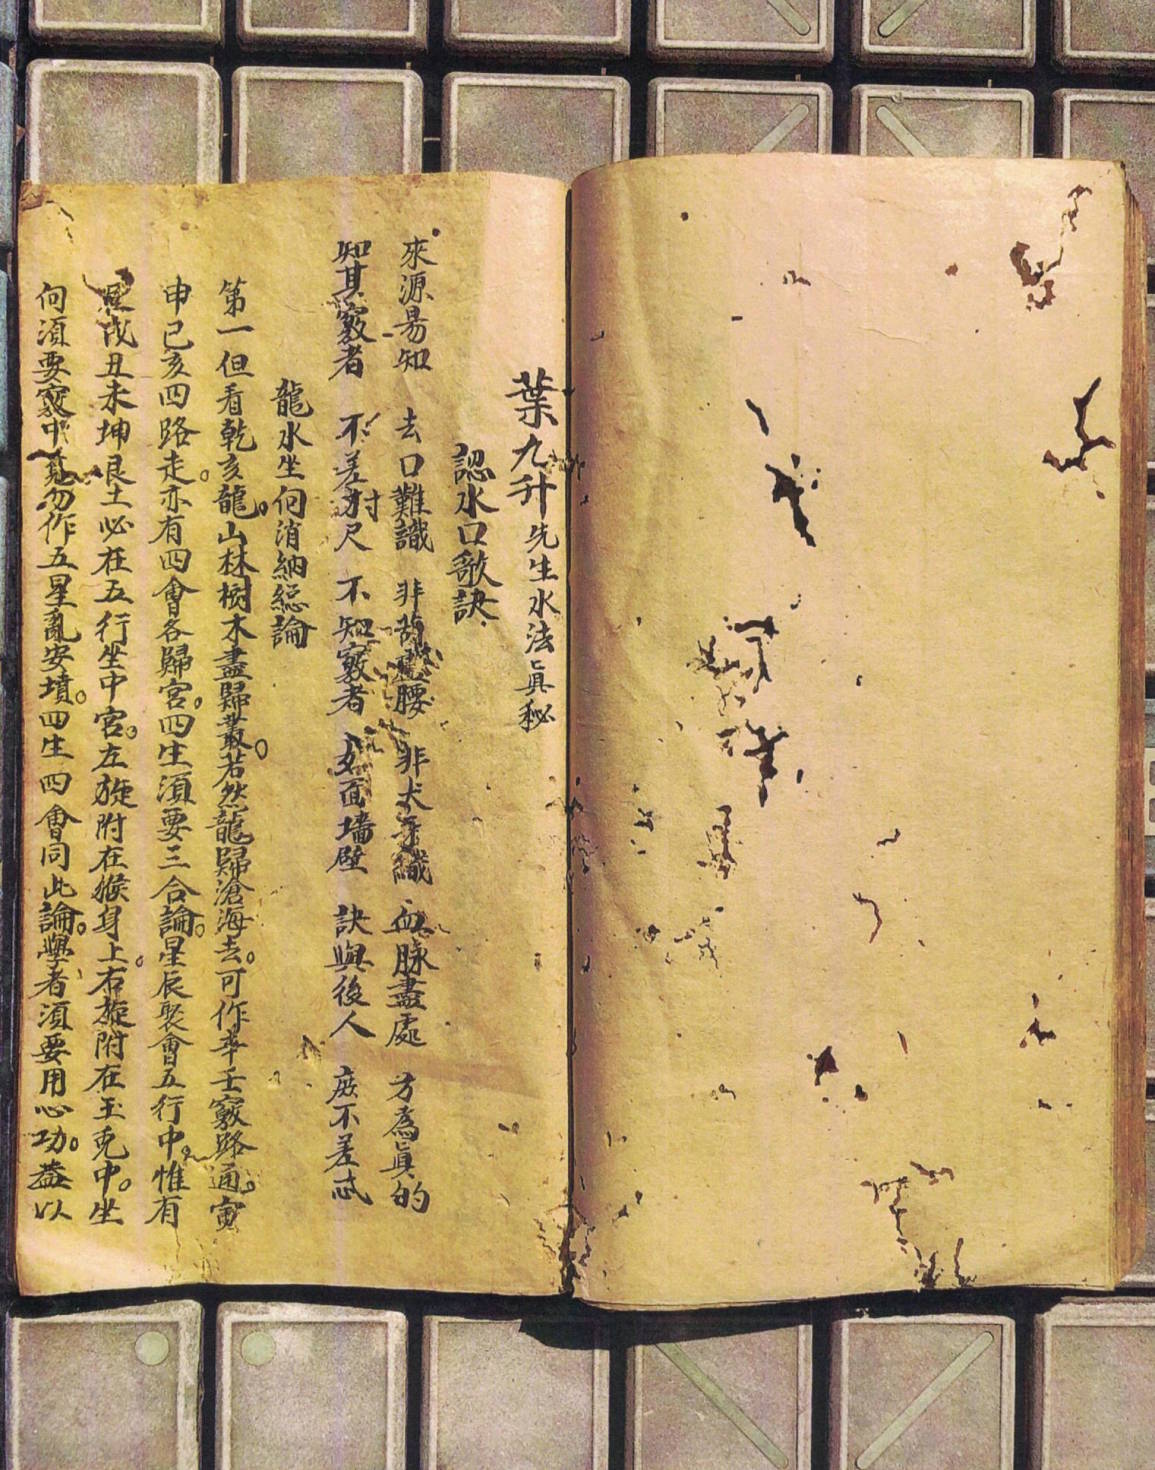 葉九升先生水法真秘
認水口歌訣
來源易知 去口難識 非 腰 非犬 織 血脉盡處 方為真的
知其竅者 不差尺 不知竅者 如面墻壁 訣與後人 庶不差忒
龍水坐向消納總論
第一但看乾亥龍。山林樹木盡歸叢。若然龍歸滄海去。可作辛壬竅路通。寅
申巳亥四路走。亦有四會各歸宮。四生須要三合論。星辰聚會五行中。惟有
戌丑未坤艮土必在五行坐中宮。左旋附在猴身上。右旋附在玉兎中。坐
向須要竅中覓勿作五星亂安墳。四生四會同此論。學者須要用心功。益以